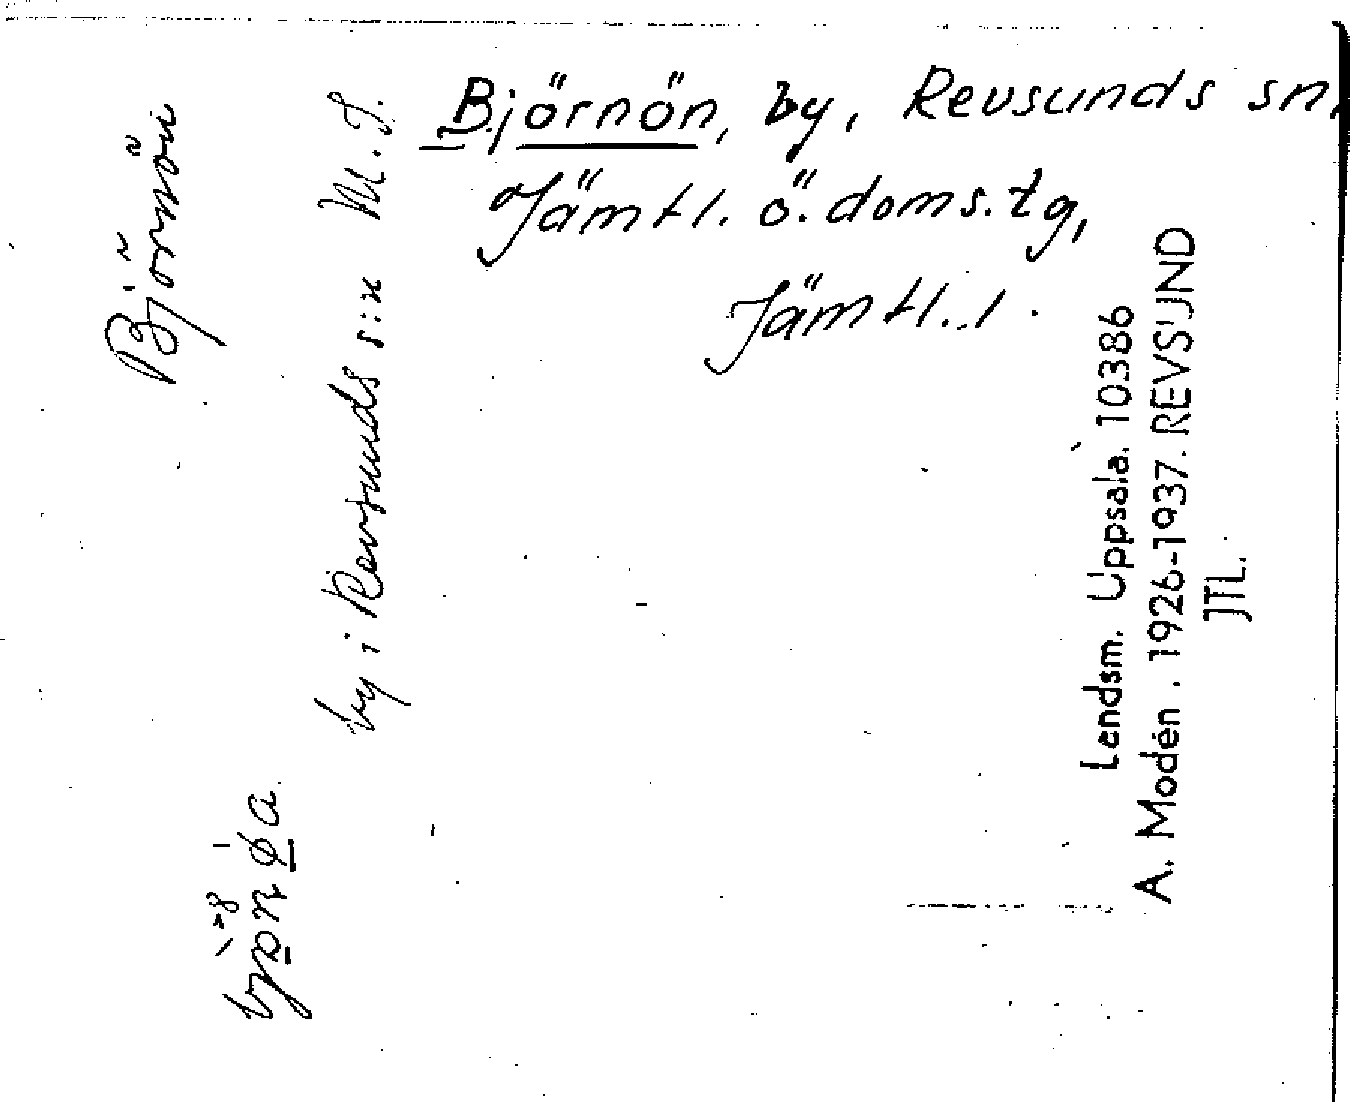 Björnön, by, Revsunds sn,
Jämtl. ö. doms. tg,
Jämtl. l.
Björnön
by i Revsunds s:n M. J.
Lendsm. Uppsala. 10386
A. Modén. 1926-1937. REVSUND
JTL.